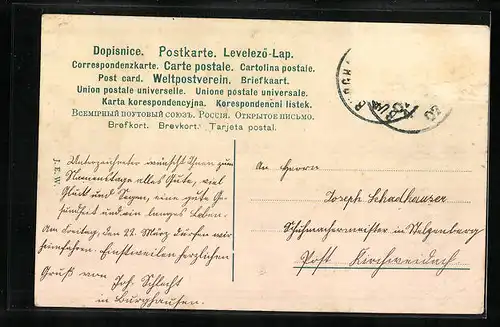 Dopisnice. Postkarte. Levelező-Lap.
Correspondenzkarte. Carte postale. Cartolina postale.
Post card. Weltpostverein. Briefkaart.
Union postale universelle. Unione postale universale.
Karta korespondencyjna. Korespondenční listek.
Всемірный почтовый союзъ. Россія. Открытое письмо.
Brefkort. Brevkort. Tarjeta postal.
BURGHA
J. E. W.
Unterzeichneter wünscht Ihnen zum
Namenstage alles Gute, viel
Glück und Segen, eine gute Ge-
sundheit und ein langes Leben.
Am Freitag, den 22. März dürfen wir
heimfahren. Einstweilen herzlichen
Gruß von Joh. Schlecht
in Burghausen.
An Herrn
Joseph Schadhauser
Schuhmachermeister in
Post Kirchweidach.